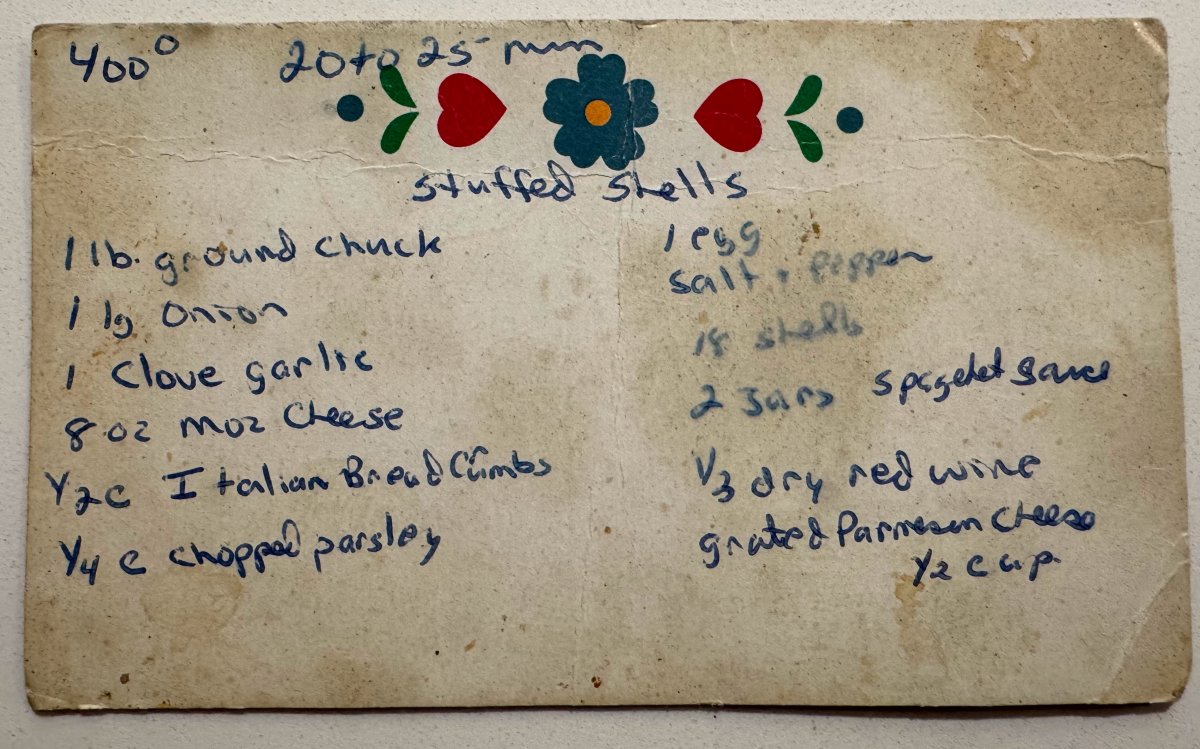 400° 20 to 25 min
Stuffed Shells
1 lb. ground chuck
1 lg onion
1 Clove garlic
8 oz moz Cheese
1/2 c Italian Bread Crumbs
1/4 c chopped parsley
1 egg
salt + pepper
18 shells
2 Jars spagehet sauce
1/3 dry red wine
grated Parmesan Cheese
1/2 cup.